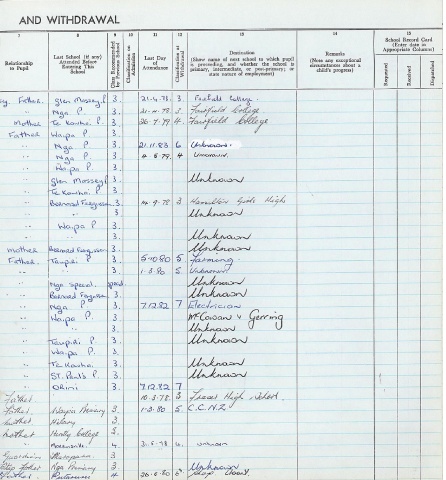 AND WITHDRAWAL
7 8 9 10 11 12 13 14 15
Relationship to Pupil
Last School (if any) Attended Before Entering This School
Class Recommended by Previous School
Classification on Admission
Last Day of Attendance
Classification at Withdrawal
Destination
(Show name of next school to which pupil is proceeding, and whether the school is primary, intermediate, or post-primary, or state nature of employment)
Remarks
(Note any exceptional circumstances about a child's progress)
School Record Card
(Enter date in Appropriate Columns)
Requested
Received
Dispatched
Father. Glen Massey P. 3. 3 Fairfield College.
Nga P. 3. Fairfield College
Mother Te Kowhai P. 3. 26.7.79 4. Fairfield College
Father Waipa P. 3.
Nga P. 3. 21.11.83 6 Unknown
Nga P. 3. 4.5.79. 4 Unknown.
Waipa P. 3.
Glen Massey P. 3. Unknown
Te Kowhai P. 3.
Bernard Fergusson 3. 3 Hamilton Girls High
" 3. Unknown
Waipa P 3.
Unknown
Mother Bernard Fergusson 3. Unknown
Father. Taupiri P. 3. 5.10.80 5 Farming.
" 3. 1.3.80 5. Unknown
Nga Special. Unknown
Bernard Fergusson 3. Unknown
Nga P 3. 7.12.82 7 Electrician
Waipa P. 3. McCowan & Gerring
" 3. Unknown
Taupiri P. 3. Unknown
Waipa P. 3.
Te Kowhai. 3. Unknown
St. Paul's P. 3. Unknown
Orini 3. 7.12.82 7
Father 10.3.78 3 Fraser High School.
Father. Waipa Primary 3. 1.3.80 5 C.C.N.Z
Mother 3.
Mother Huntly College 3.
4. 3.5.78 4. unknown
Guardian 3.
Father Nga Primary 3. Unknown
Father 4